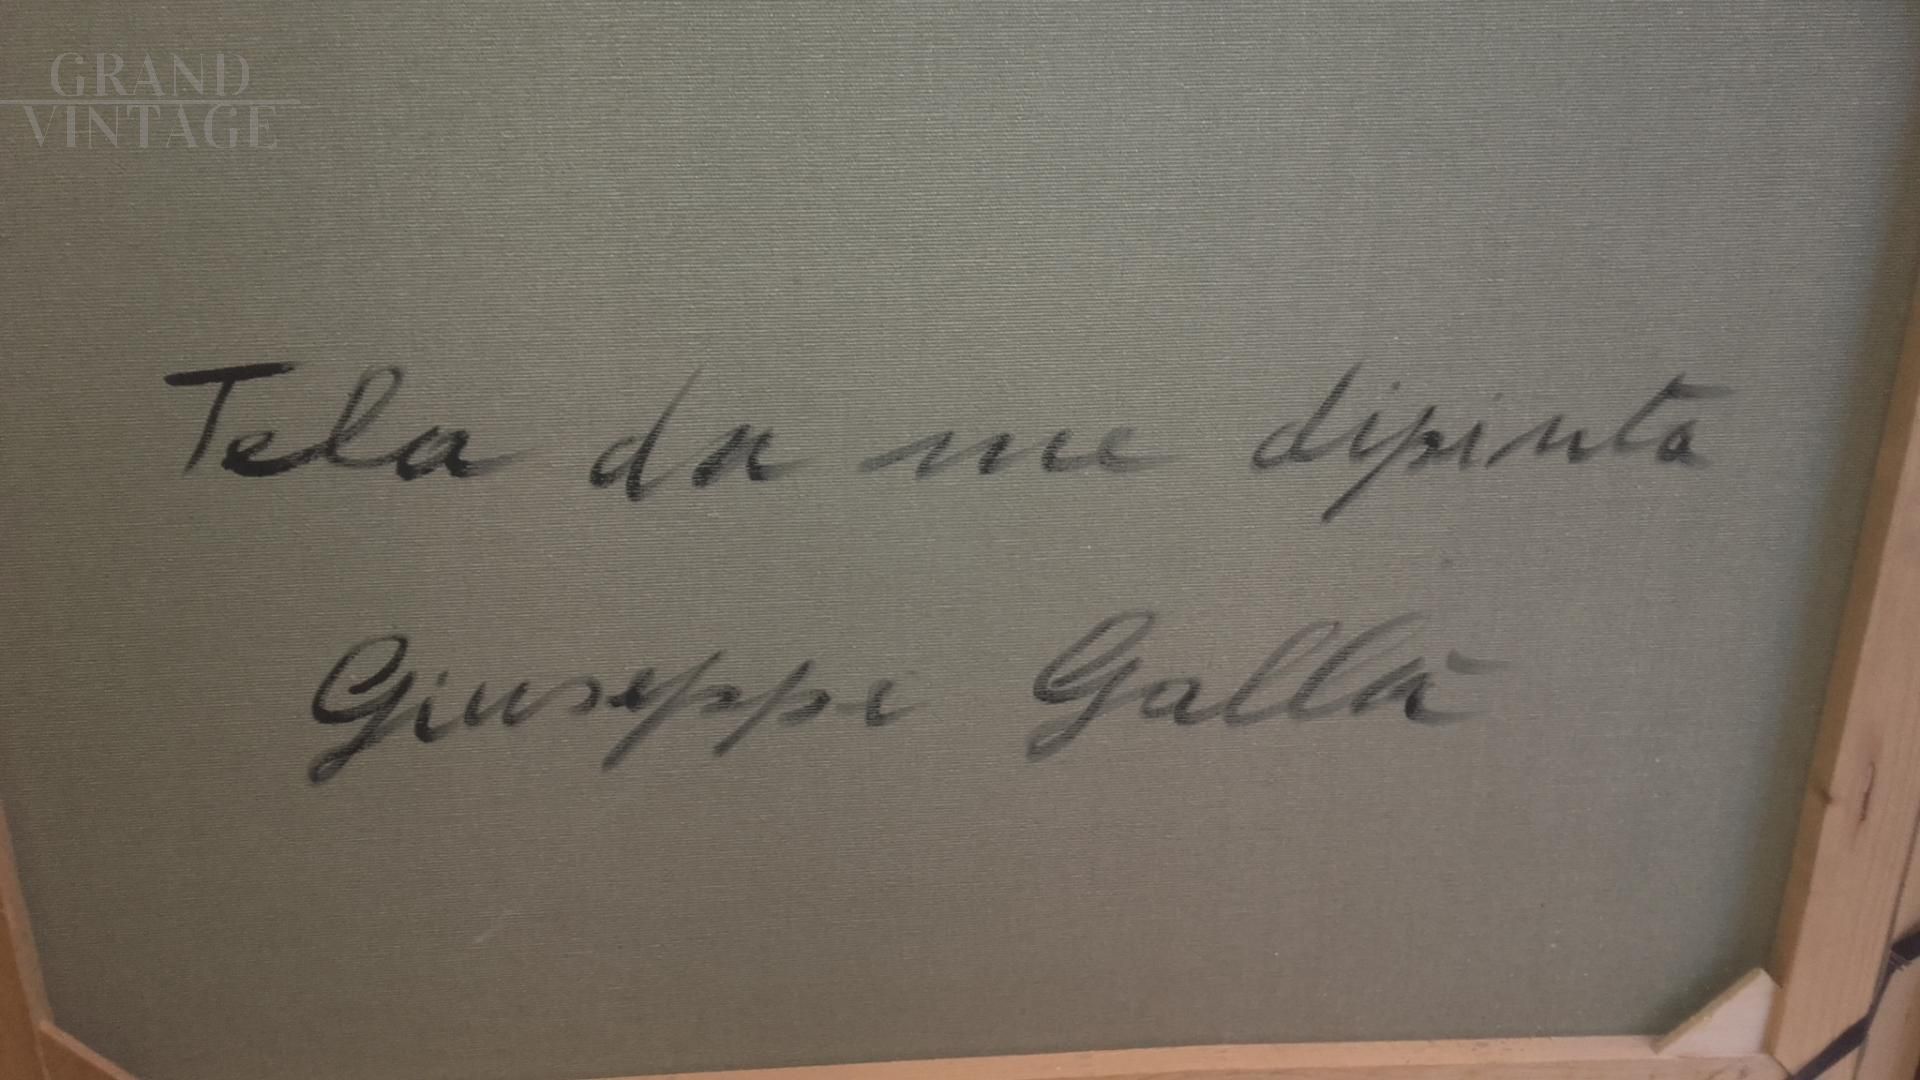 GRAND
VINTAGE
Tela da me dipinta
Giuseppe Gallà